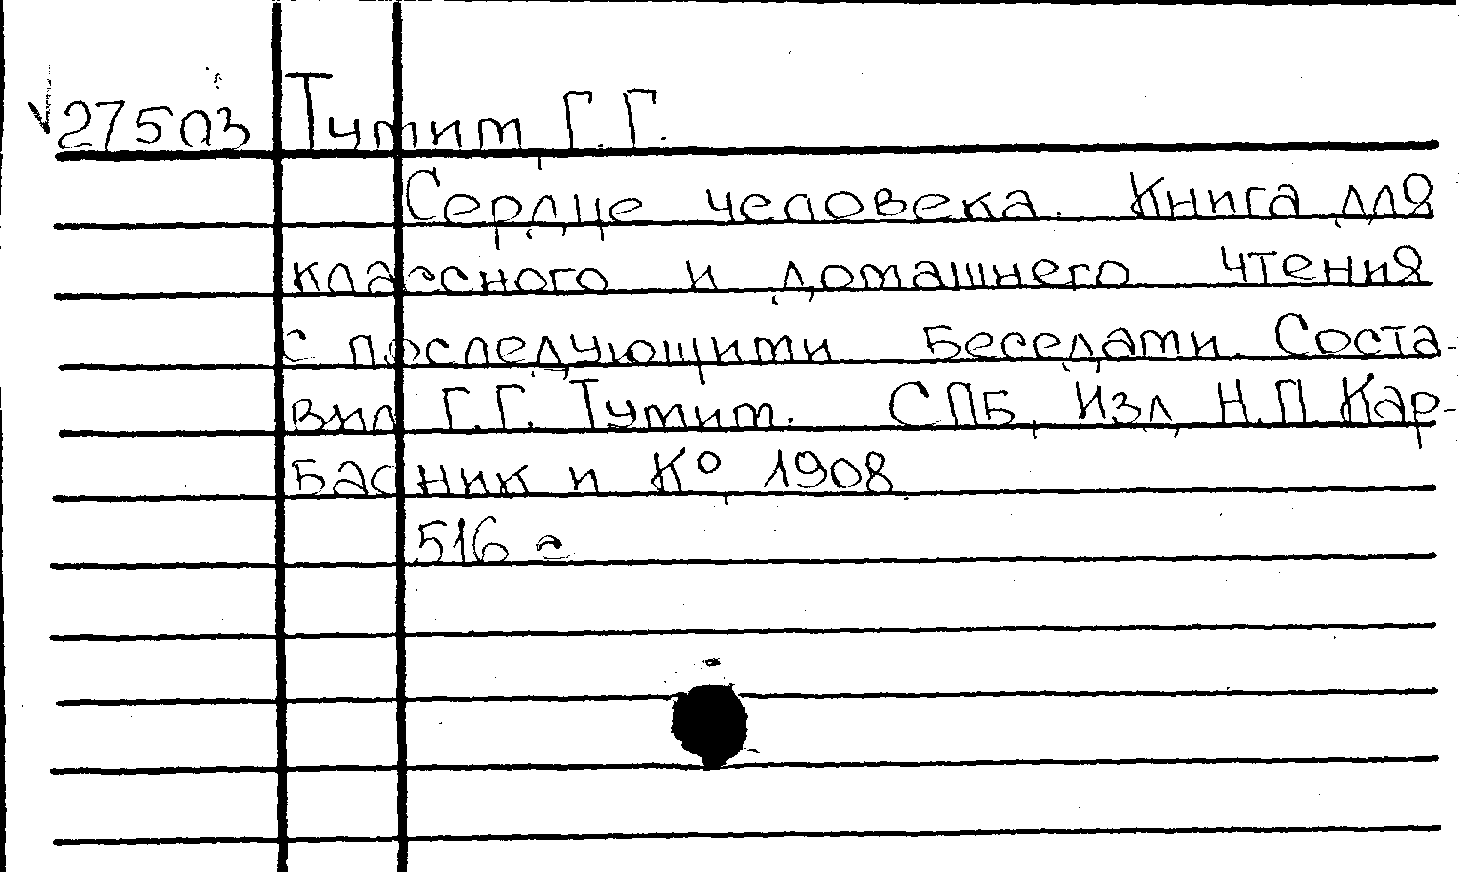 27503 Тумим, Г.Г.
Сердце человека. Книга для
классного и домашнего чтения
с последующими беседами. Соста-
вил Г.Г. Тумим. СПБ, Изд. Н.П. Кар-
басник и К° 1908
516 с